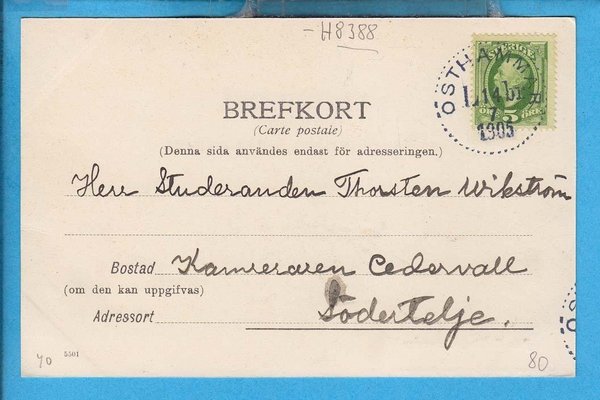 -H8388
SVERIGE
ÖSTHAMMAR
14
7
1905
5
ÖRE
BREFKORT
(Carte postale)
(Denna sida användes endast för adresseringen.)
Herr Studeranden Thorsten Wikström
Bostad Kamreraren Cedervall
(om den kan uppgifvas)
Adressort Södertelje.
ÖST
40 5501
80